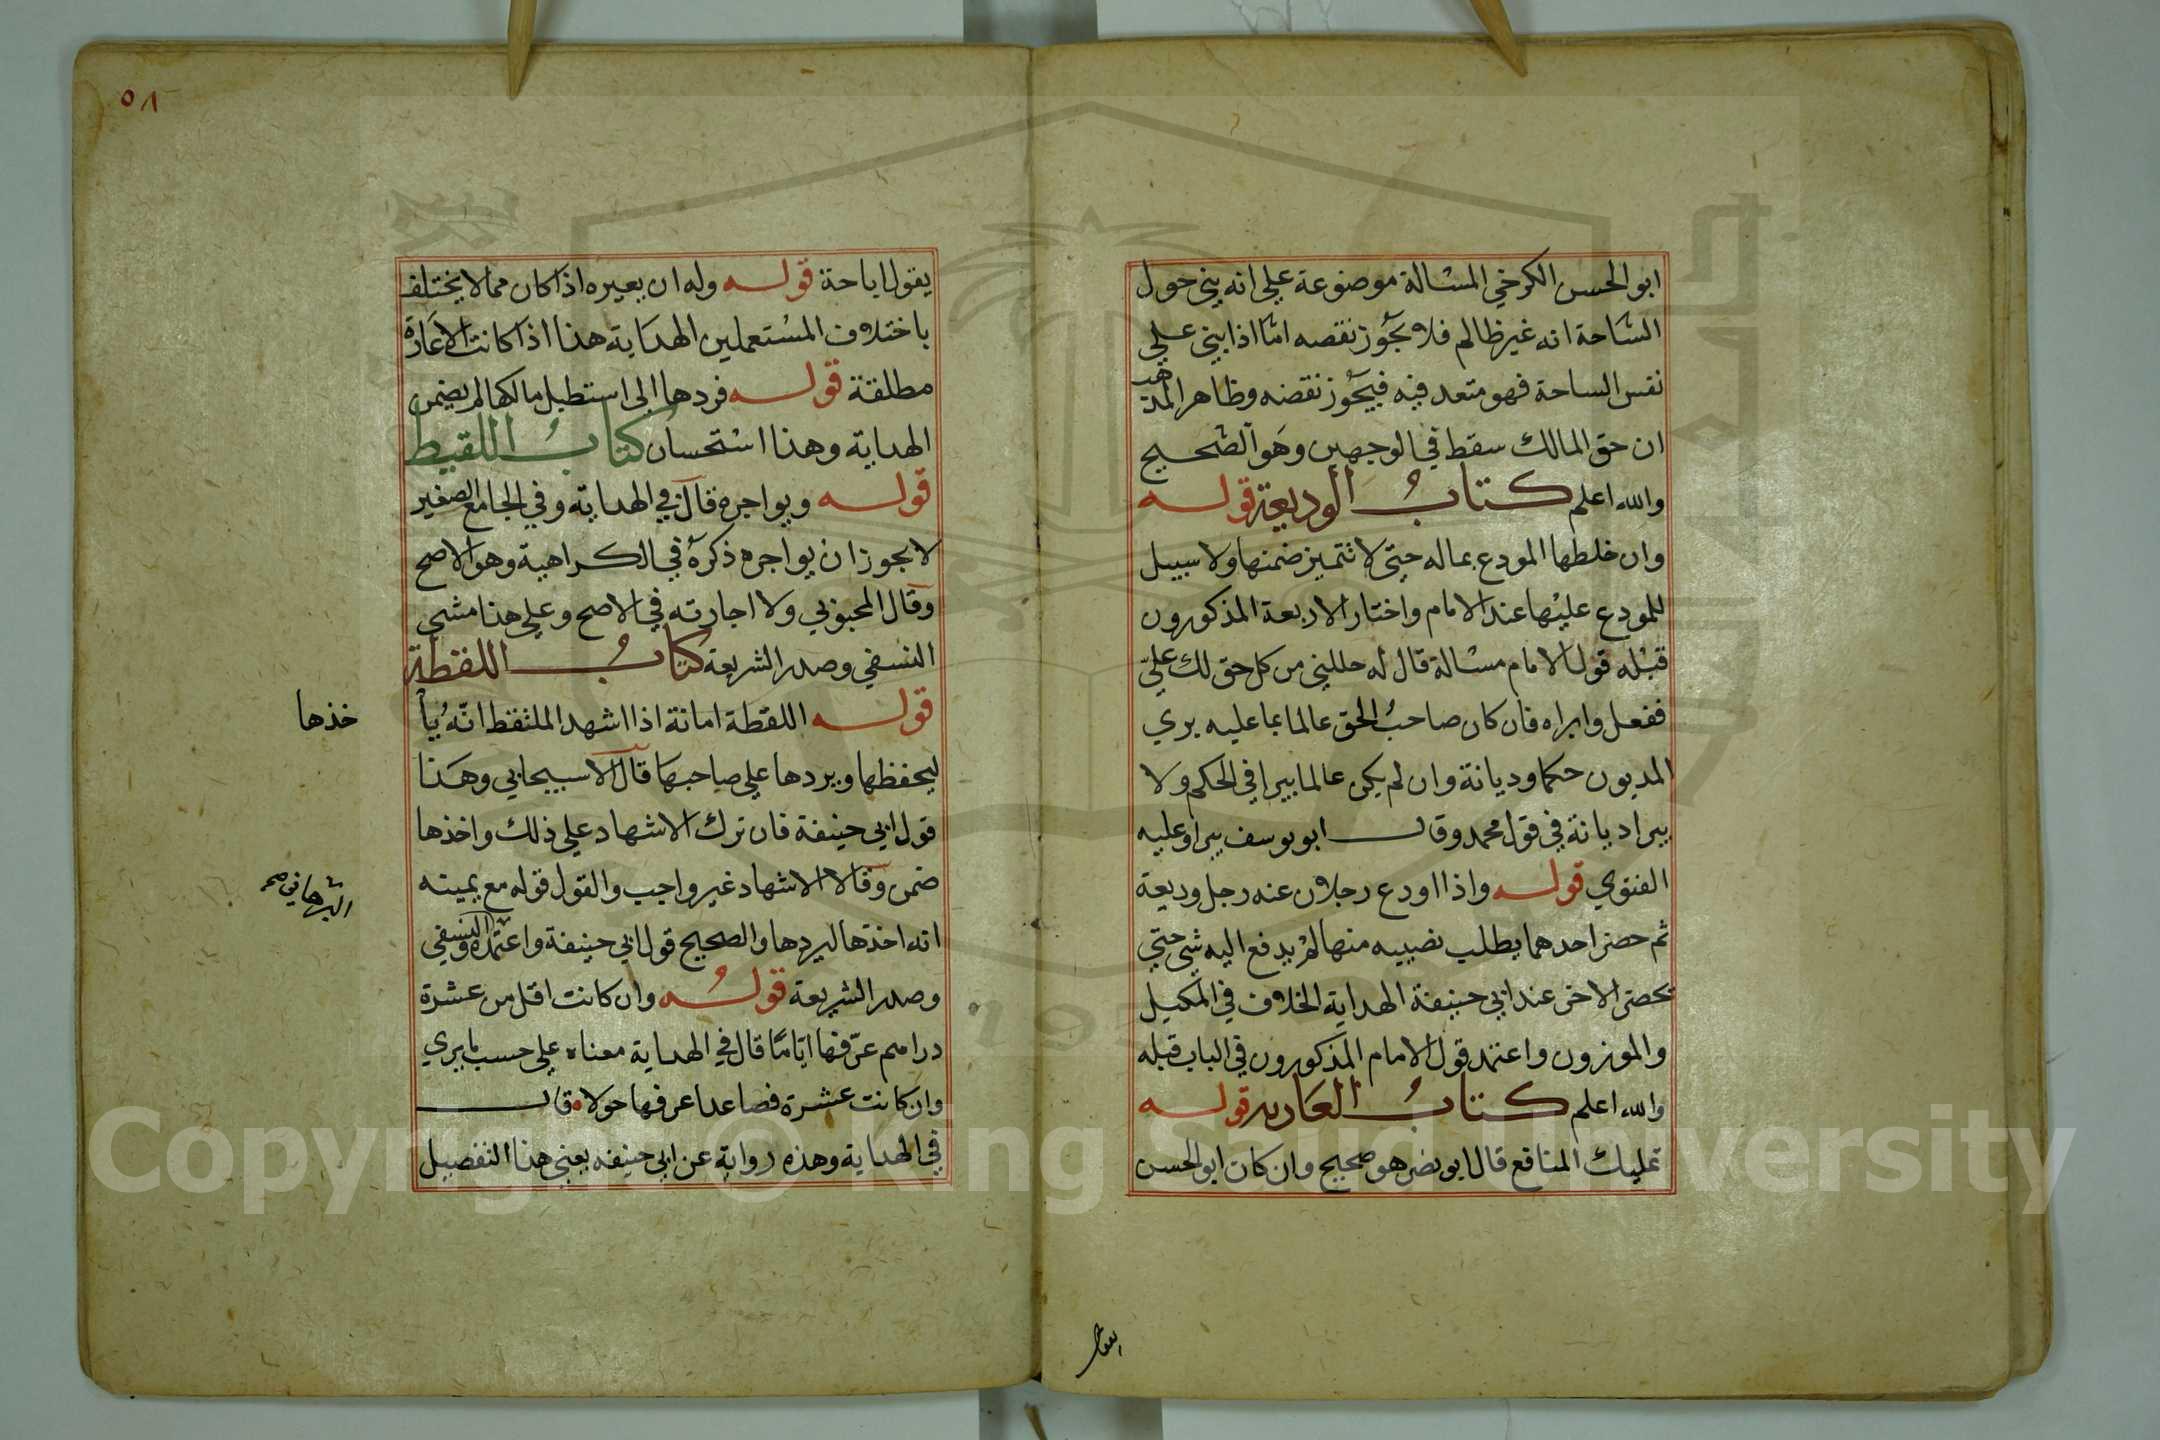 ابو الحسن الكرخي المسالة موضوعة علي انه بني حول
الساحة انه غير ظالم فلا يجوز نقصه امّا اذا بني علي
نفس الساحة فهو متعد فيه فيجوز نقضه وظاهر المذهب
ان حق المالك سقط في الوجهين وهو الصحيح
والله اعلم كتاب الوديعة قوله
وان خلطها المودع بماله حتى لا تتميز ضمنها ولا سبيل
للمودع عليها عند الامام واختار الاربعة المذكورون
قبله قول الامام مسالة قال له حللني من كل حق لك عليّ
ففعل وابراه فان كان صاحب الحق عالما بما عليه بري
المديون حكما وديانة وان لم يكن عالما يبرا في الحكم ولا
يبرا ديانة في قول محمد وقال ابو يوسف يبرا وعليه
الفتوي قوله واذا اودع رجلان عند رجل وديعة
ثم حضر احدهما يطلب نصيبه منها لم يدفع اليه شي حتي
يحضر الاخر عند ابي حنيفة الهداية الخلاف في المكيل
والموزون واعتمد قول الامام المذكورون في الباب قبله
والله اعلم كتاب العارية قوله
تمليك المنافع قال ابو نصر هو صحيح وان كان ابو الحسن
يقول
٥٨
يقول اباحة قوله وله ان يعيره اذا كان مما لا يختلف
باختلاف المستعملين الهداية هذا اذا كانت الاعارة
مطلقة قوله فردها الى اسطبل مالكها لم يضمن
الهداية وهذا استحسان كتاب اللقيط
قوله ويواجره قال في الهداية وفي الجامع الصغير
لا يجوز ان يواجره ذكره في الكراهية وهو الاصح
وقال المحبوبي ولا اجارته في الاصح وعلي هذا مشي
النسفي وصدر الشريعة كتاب اللقطة
قوله اللقطة امانة اذا اشهد الملتقط انّه يأ
خذها
ليحفظها ويردها علي صاحبها قال الاسبيجابي وهذا
قول ابي حنيفة فان ترك الاشهاد علي ذلك واخذها
ضمن وقالا الاشهاد غير واجب والقول قوله مع يمينه
البرهاني صح
انه اخذها ليردها والصحيح قول ابي حنيفة واعتمده والنسفي
وصدر الشريعة قوله وان كانت اقل من عشرة
دراهم عرّفها ايّامًا قال في الهداية معناه علي حسب ما يري
وان كانت عشرة فصاعدا عرفها حولا قال
في الهداية وهذه رواية عن ابي حنيفه يعني هذا التفصيل
Copyright © King Saud University